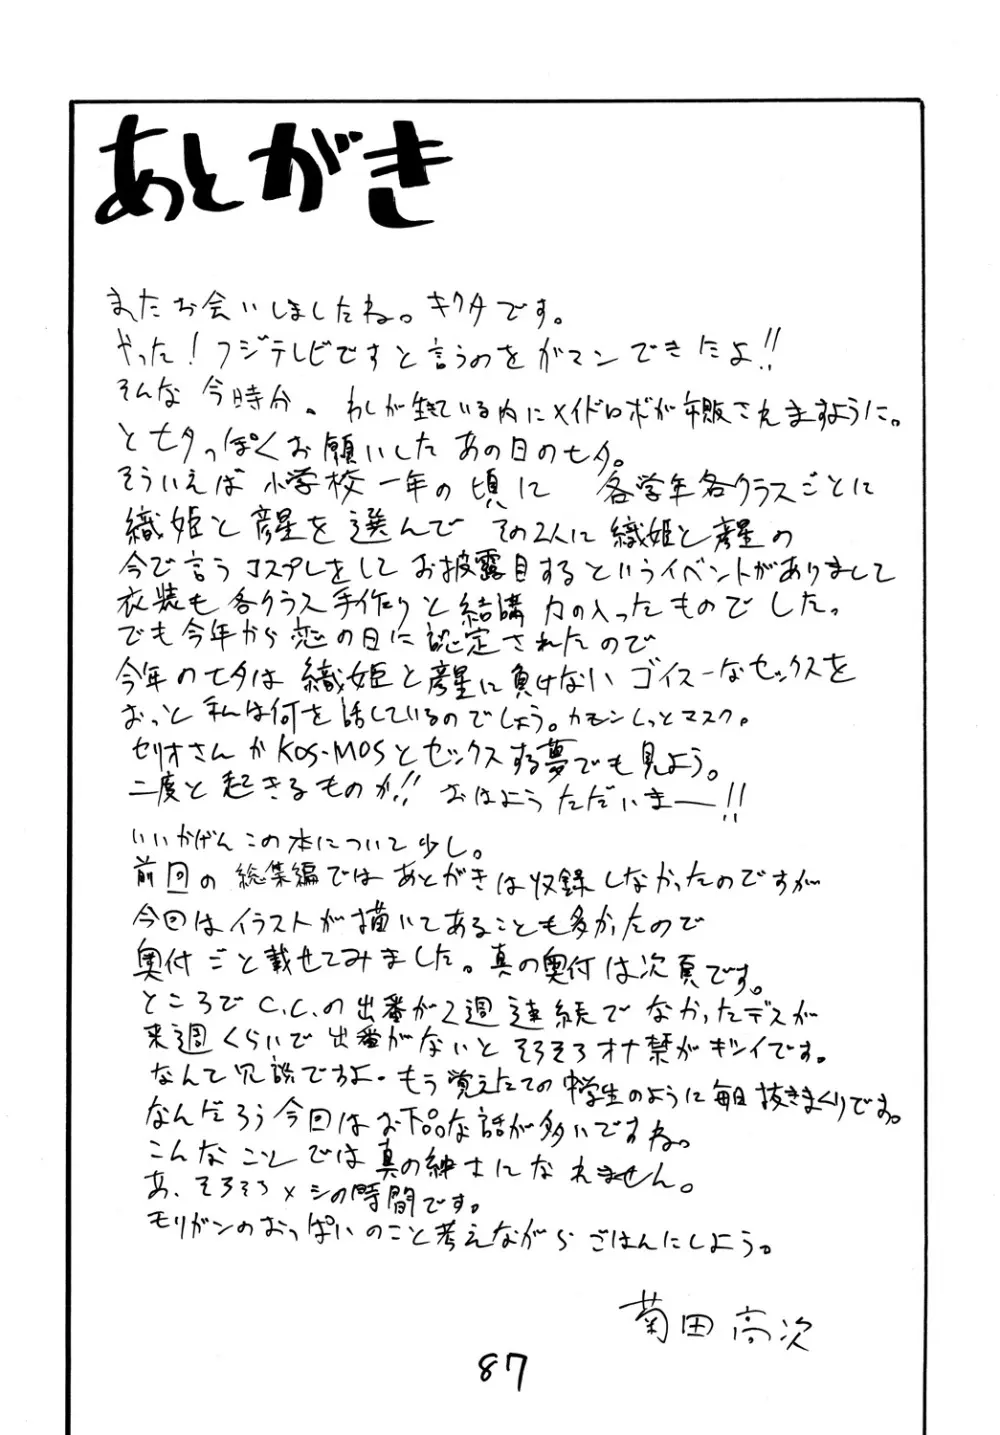 あとがき
またお会いしましたね。キクタです。
やった！フジテレビですと言うのをガマンできたよ!!
そんな今時分。わしが生きている内にメイドロボが市販されますように。
と七夕っぽくお願いしたあの日の七夕。
そういえば小学校一年の頃に 各学年各クラスごとに
織姫と彦星を選んで その2人に織姫と彦星の
今で言うコスプレをしてお披露目するというイベントがありまして
衣装も各クラス手作りと結構力の入ったものでした。
でも今年から恋の日に認定されたので
今年の七夕は織姫と彦星に負けないゴイスーなセックスを
おっと私は何を話しているのでしょう。カモンしっとマスク。
セリオさんかKOS-MOSとセックスする夢でも見よう。
二度と起きるものか!! おはようただいまー!!
いいかげんこの本について少し。
前回の総集編ではあとがきは収録しなかったのですが
今回はイラストが描いてあることも多かったので
奥付ごと載せてみました。真の奥付は次頁です。
ところでC.C.の出番が2週連続でなかったデスが
来週くらいで出番がないとそろそろオナ禁がキツイです。
なんて冗談ですよ・もう覚えたての中学生のように毎日抜きまくりです。
なんだろう今回はお下品な話が多いですね。
こんなことでは真の紳士になれません。
あ、そろそろメシの時間です。
モリガンのおっぱいのこと考えながらごはんにしよう。
菊田高次
87